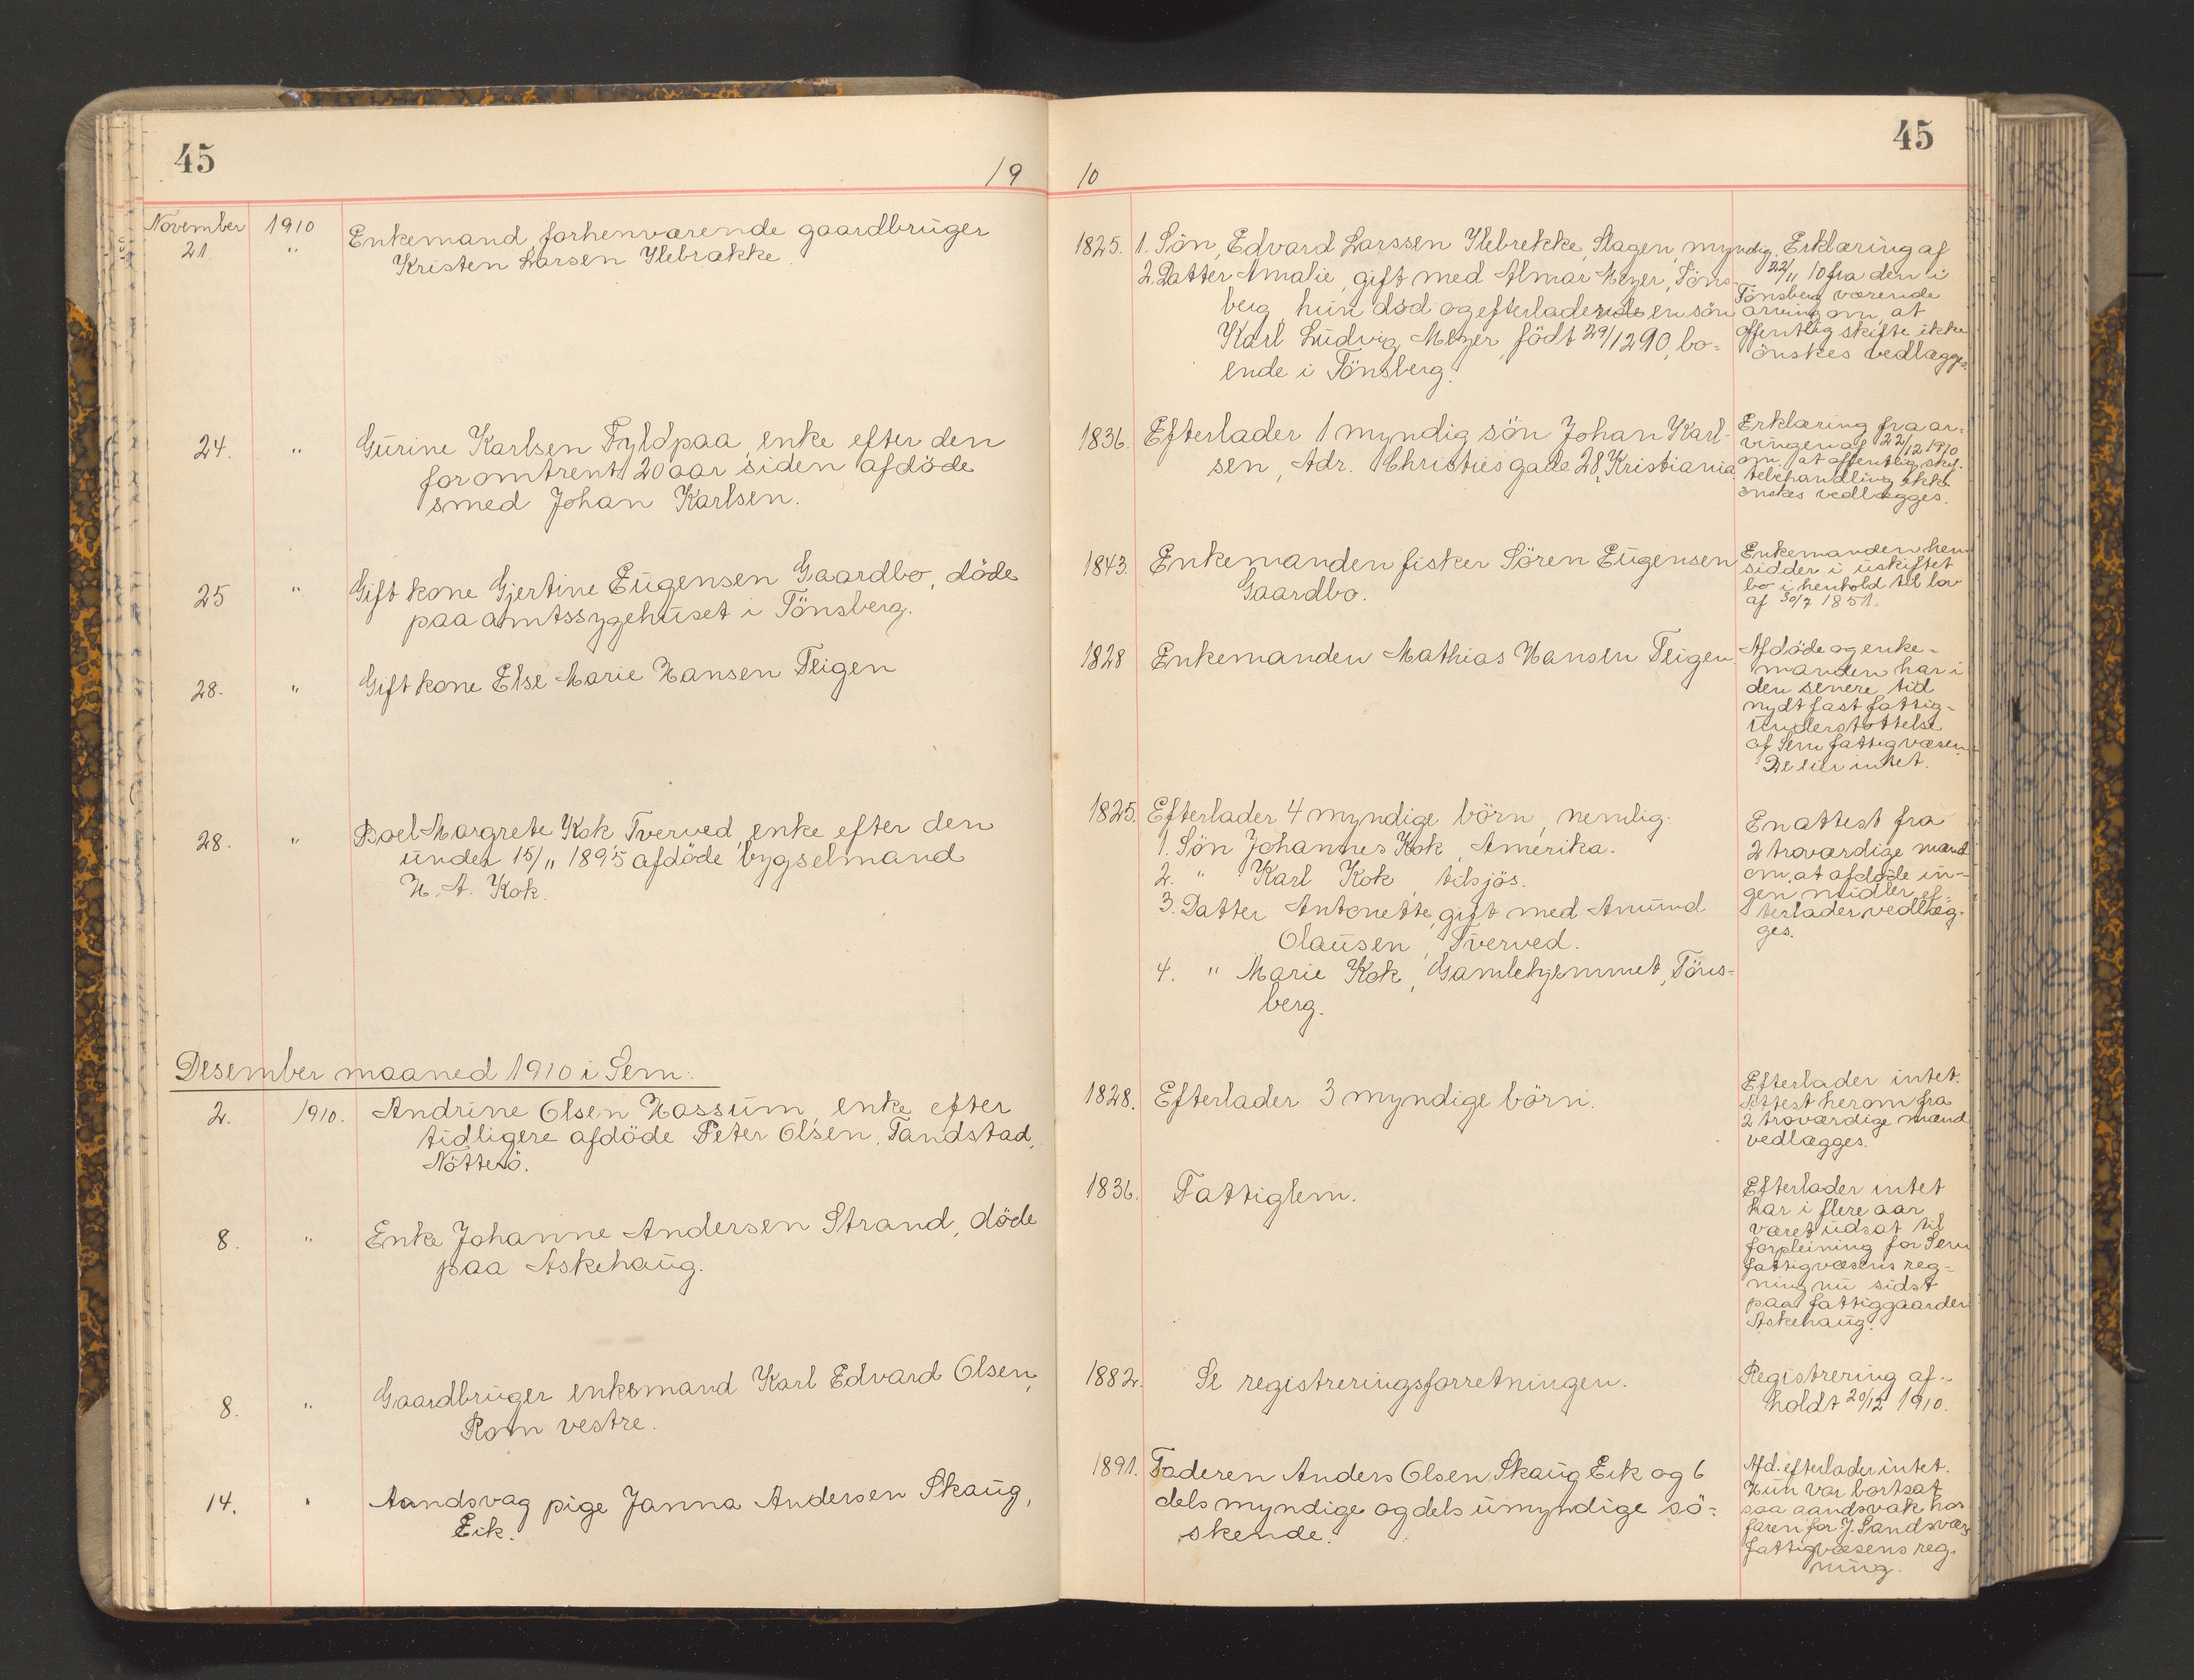 45
19
November 1910 Enkemand, forhenværende gaardbruger
21. " Kristen Larsen Ilebrække.
24. " Gurine Karlsen Fyldpaa, enke efter den
for omtrent 20 aar siden afdöde
smed Johan Karlsen.
25 " Gift kone Gjertine Eugensen Gaardbo, döde
paa amtssygehuset i Tönsberg.
28. " Gift kone Else Marie Hansen Teigen
28. " Boel Margrete Kok Tverved, enke efter den
under 15/11 1895 afdöde bygselmand
H. A. Kok.
Desember maaned 1910 i Sem:
2. 1910. Andrine Olsen Hassum, enke efter
tidligere afdöde Peter Olsen, Tandstad,
Nötterö.
8. " Enke Johanne Andersen Strand, döde
paa Askehaug.
8. " Gaardbruger enkemand Karl Edvard Olsen,
Rom vestre.
14. " Aandsvag pige Janna Andersen Skaug,
Eik.
45
10
1825. 1. Sön, Edvard Larssen Ilebrekke, Slagen, myndig.
2. Datter Amalie, gift med Almar Meyer, Töns-
berg, hun död og efterladende en sön
Karl Ludvig Meyer, födt 29/12 90, bo-
ende i Tönsberg.
Erklæring af
22/11 10 fra den i
Tönsberg værende
arving om, at
offentlig skifte ikke
önskes vedlægges.
1836. Efterlader 1 myndig sön Johan Karl-
sen, Adr. Christies gade 28, Kristiania.
Erklæring fra ar-
vingen af 22/12 1910
om, at offentlig skif-
tebehandling ikke
önskes vedlægges.
1843. Enkemanden fisker Sören Eugensen
Gaardbo.
Enkemanden hen
sidder i uskiftet
bo i henhold til lov
af 30/7 1851.
1828 Enkemanden Mathias Hansen Teigen.
Afdöde og enke-
manden har i
den senere tid
nydt fast fattig-
understöttelse
af Sem fattigvæsen.
De eier intet.
1825. Efterlader 4 myndige börn, nemlig:
1. Sön Johannes Kok, Amerika.
2. " Karl Kok, tilsjös.
3. Datter Antonette, gift med Anund
Olausen, Tverved.
4. " Marie Kok, Gamlehjemmet, Töns-
berg.
En attest fra
2 troværdige mænd
om, at afdöde in-
gen midler ef-
terlader vedlæg-
ges.
1828. Efterlader 3 myndige börn.
Efterlader intet.
Attest herom fra
2 troværdige mænd
vedlægges.
1836. Fattiglem.
Efterlader intet
har i flere aar
været udsat til
forpleining for Sem
fattigvæsens reg-
ning nu sidst
paa fattiggaarden
Askehaug.
1882. Se registreringsforretningen.
Registrering af-
holdt 20/12 1910.
1891. Faderen Anders Olsen Skaug Eik og 6
dels myndige og dels umyndige sö-
skende.
Afd. efterlader intet.
Hun var bortsat
saa aandsvak hos
faren for J. Sandsvær
fattigvæsens reg-
ning.